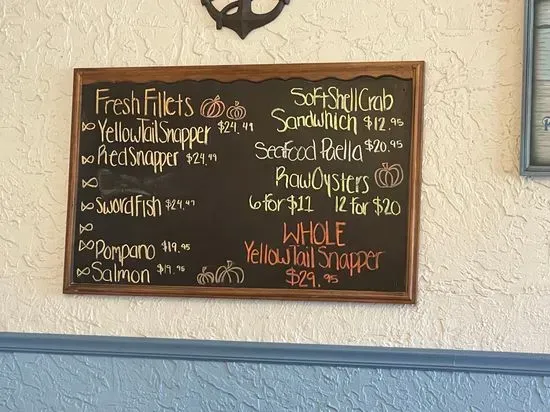 Fresh Fillets
YellowTail Snapper $24.99
Red Snapper $24.99
SwordFish $24.97
Pompano $19.95
Salmon $19.95
Soft Shell Crab
Sandwhich $12.95
SeaFood Paella $20.95
Raw Oysters
6 For $11 12 For $20
WHOLE
YellowTail Snapper
$29.95